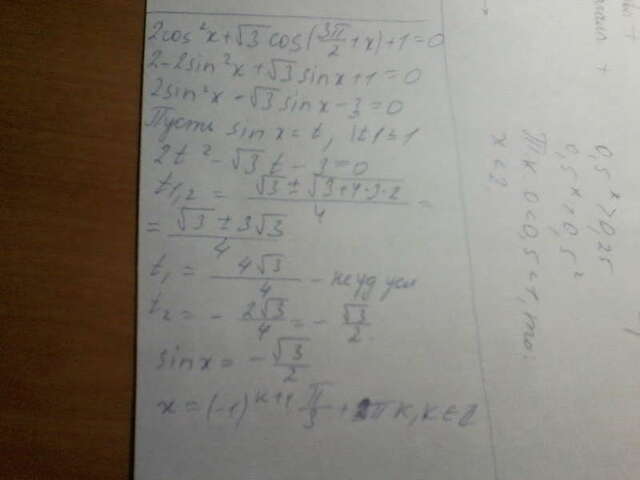 2cos²x+√3cos(3π/2+x)+1=0
2-2sin²x+√3sinx+1=0
2sin²x-√3sinx-3=0
Пусть sinx=t, |t|≤1
2t²-√3t-3=0
t₁,₂ = (√3±√(3+4·3·2))/4 =
= (√3±3√3)/4
t₁ = 4√3/4 - не уд усл
t₂ = -2√3/4 = -√3/2
sinx = -√3/2
x = (-1)^(k+1) π/3 + πk, k∈Z
0,5ˣ>0,25
0,5ˣ>0,5²
Т.к 0<0,5<1, то:
x<2